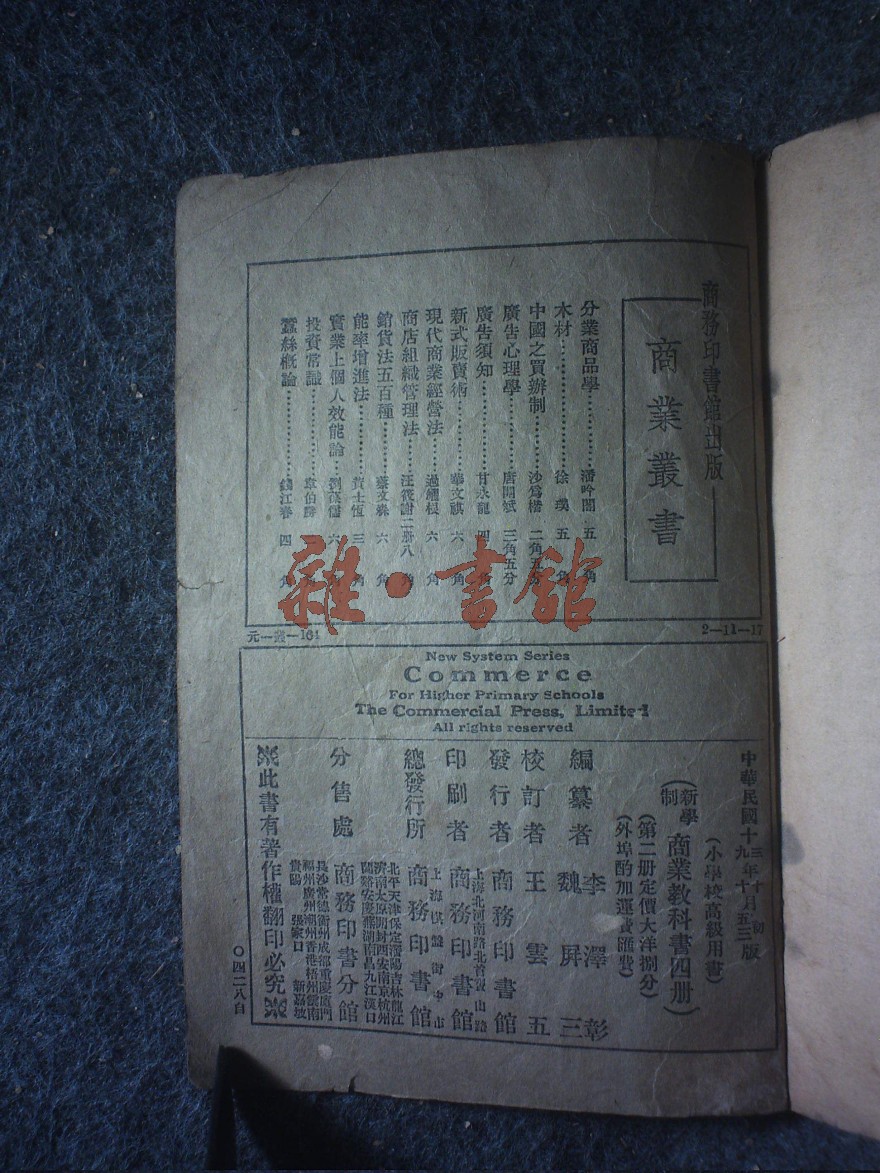 商務印書館出版
商業叢書
分業商品學 潘吟閣 五角
木材 徐璞 五角
中國之買辦制 沙爲楷 二角五分
廣告心理學 唐開斌 三角五分
廣告須知 甘永龍 四角
新式販賣術 華文祺 六角
現代商業經營法 過耀根 六角
商店組織管理法 汪筱謝 二册八角
銷貨法五百種 蔡文森 六角
能率增進法 賀士恆 三角
實業上個人效能論 劉葆儒 六角
投資常識
蠶絲概論 錢江春 四角
雜·書館
元—叢—164
2—11—17
New System Series
Commerce
For Higher Primary Schools
The Commercial Press, Limited
All rights reserved
中華民國十三年十初版
中華民國十九年十月五三版
(小學校高級用書)
(新學制商業教科書四册)
(第二册定價大洋捌分)
(外埠酌加運費匯費)
編纂者 李澤彰
魏屏三
校訂者 王雲五
發行者 商務印書館
上海北河南路北首寶山路
印刷者 商務印書館
上海棋盤街中市
總發行所 商務印書館
北平天津保定瀋陽吉林龍江
濟南太原開封西安南京杭州
蘭谿安慶蕪湖南昌九江漢口
分售處 商務印書分館
長沙常德衡州成都重慶廈門
福州廣州潮州香港梧州雲南
貴陽 張家口 新嘉坡
※此書有著作權翻印必究※
〇四二八自